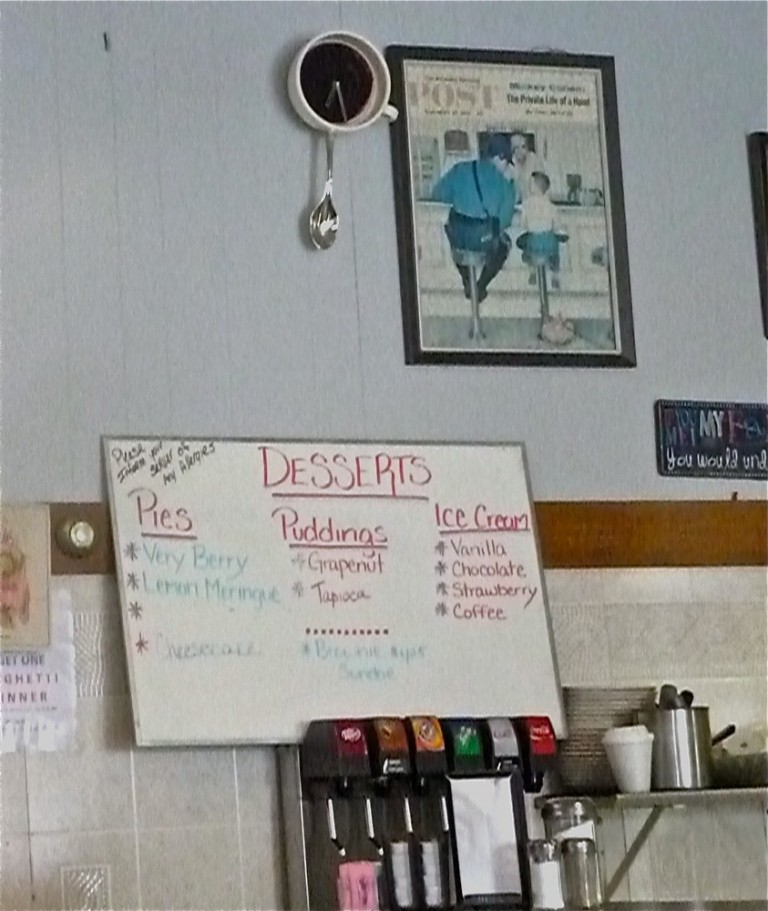 POST
The Private Life of a Hood
MY
You would und
Please
Inform your
server of
any Allergies
DESSERTS
Pies
* Very Berry
* Lemon Meringue
*
* Cheesecake
Puddings
* Grapenut
* Tapioca
* Brownie
Sundae
Ice Cream
* Vanilla
* Chocolate
* Strawberry
* Coffee
GET ONE
GHETTI
INNER